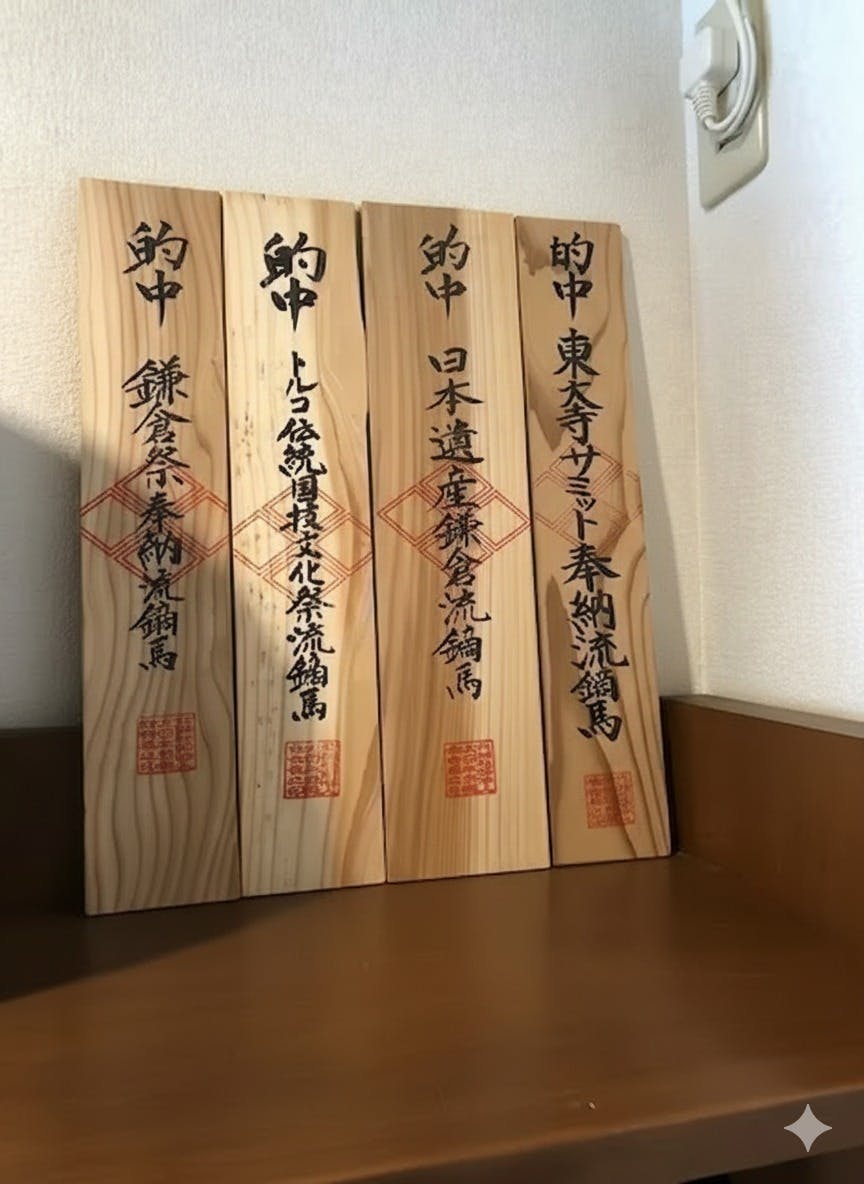 的中 東大寺サミット奉納流鏑馬
的中 日本遺産鎌倉流鏑馬
的中 トルコ伝統国技文化祭流鏑馬
的中 鎌倉祭奉納流鏑馬